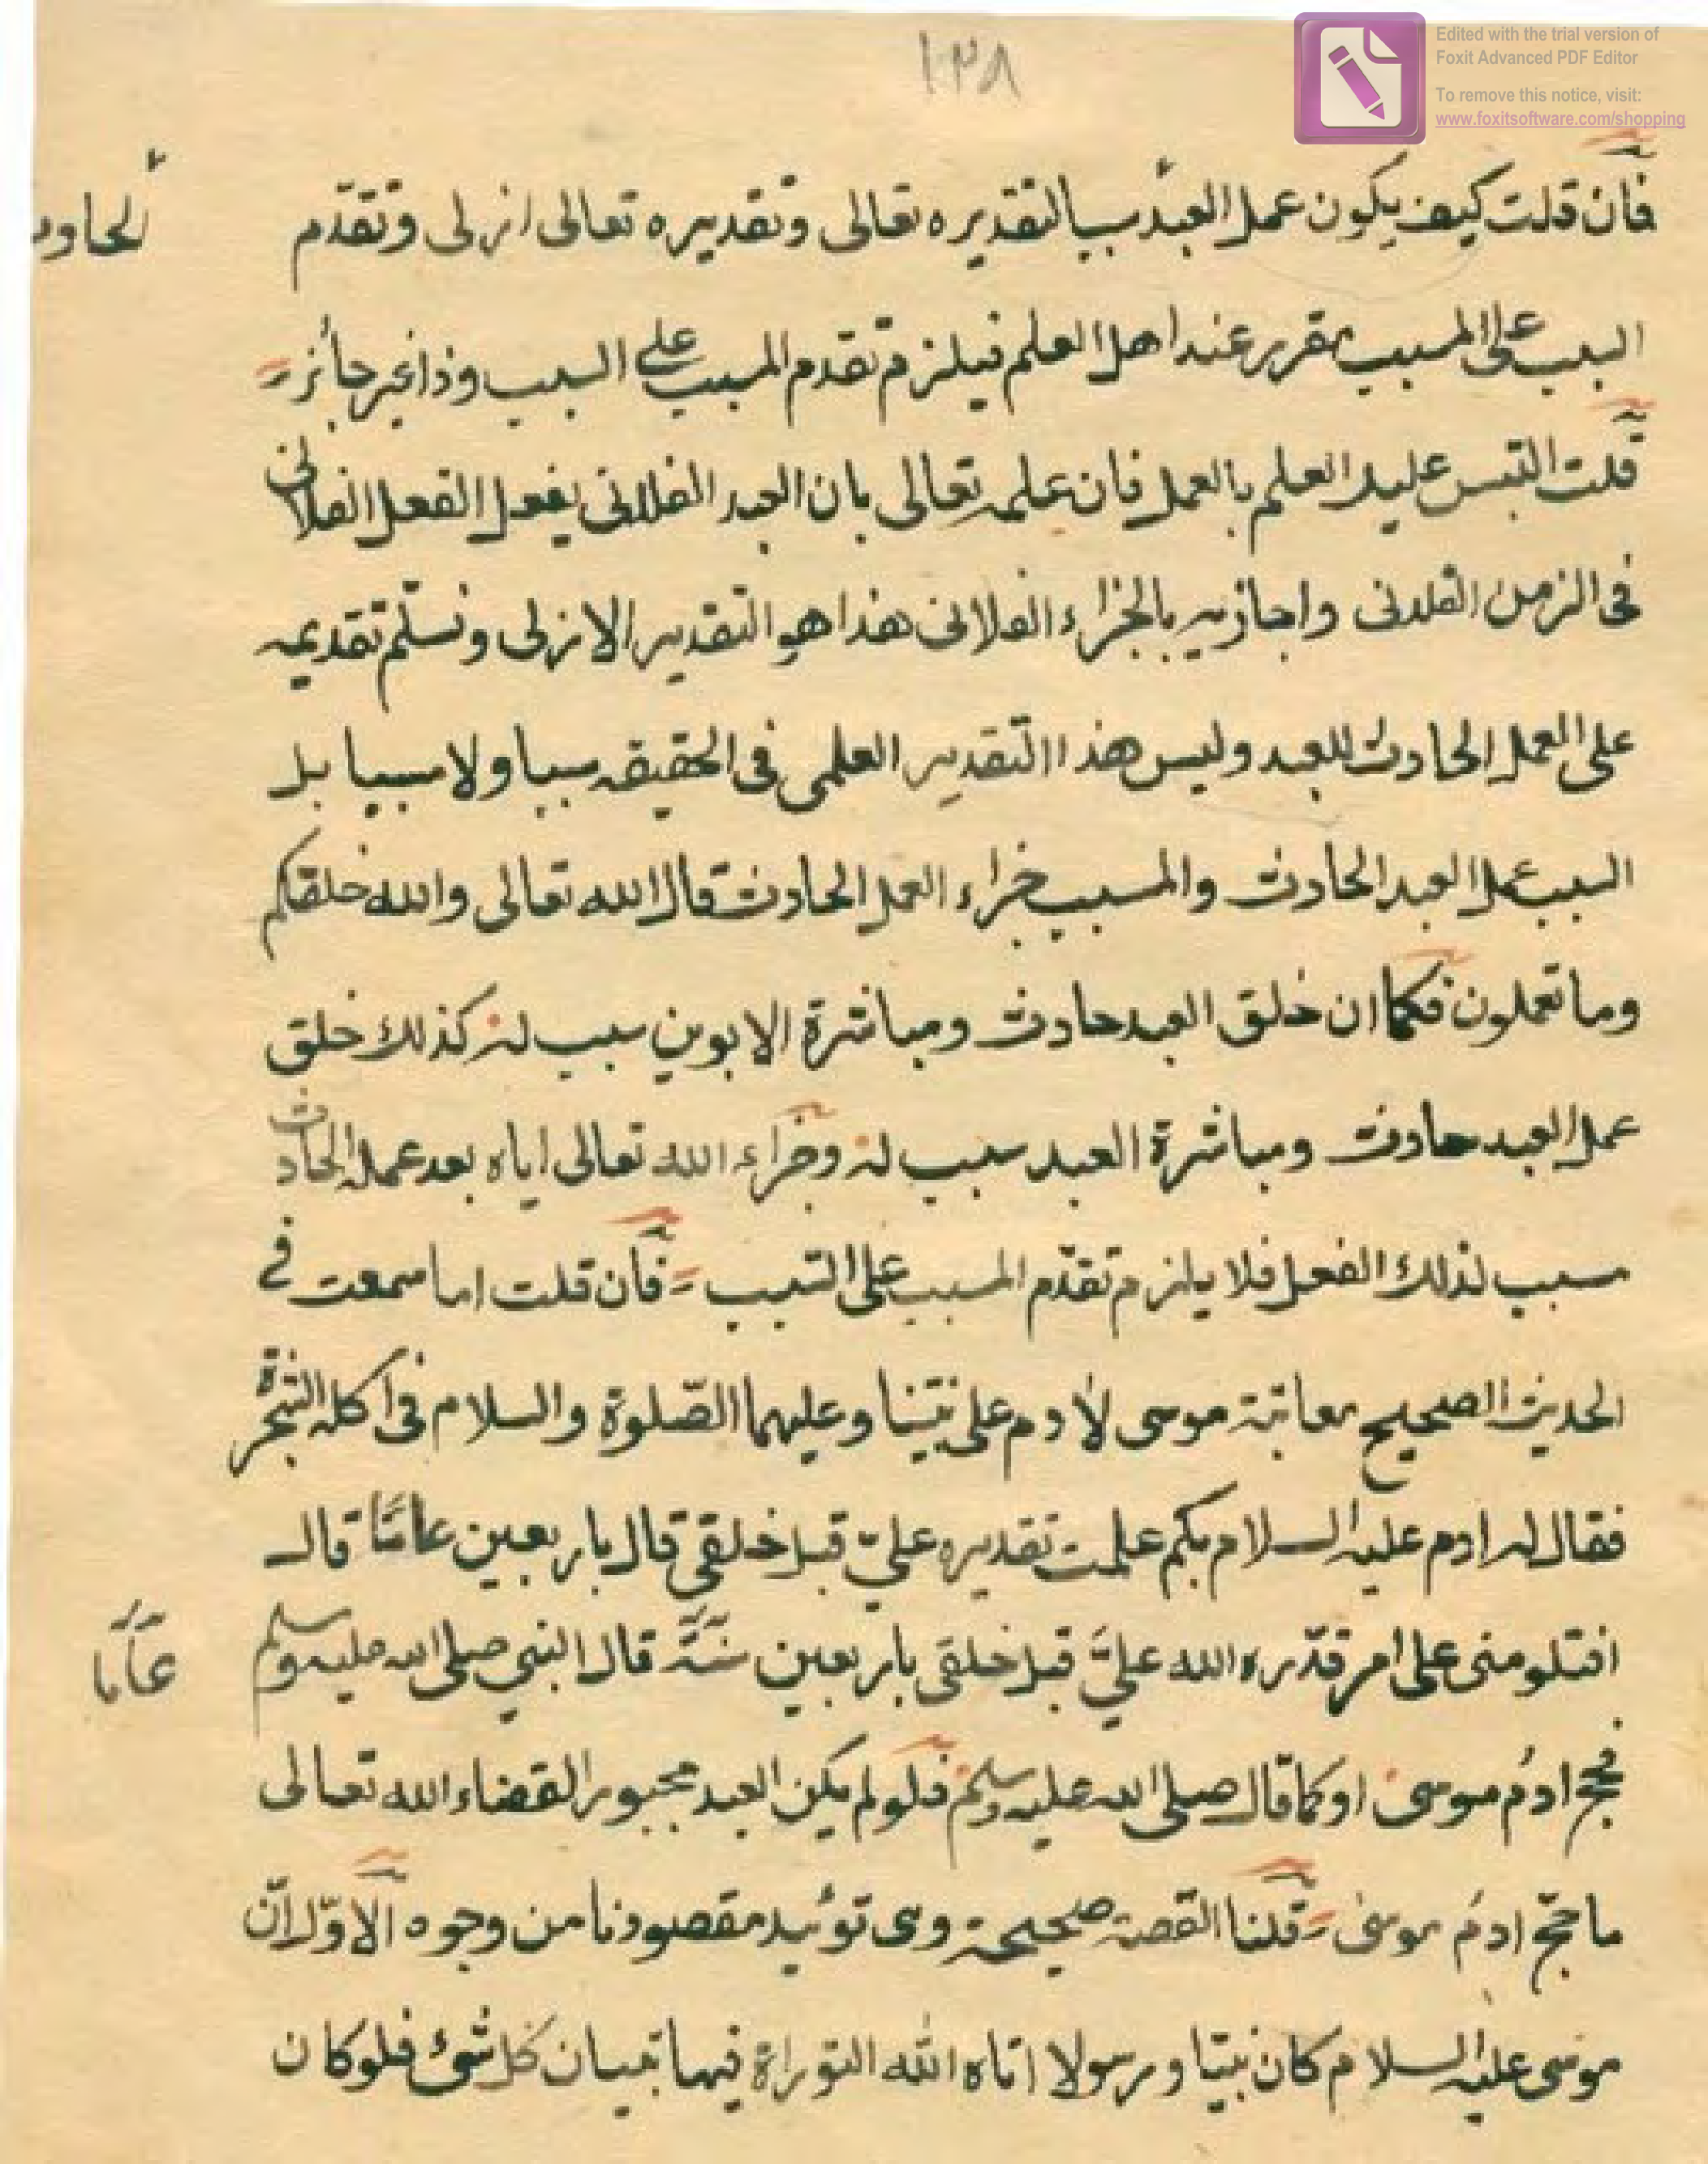 ١٣٨
Edited with the trial version of
Foxit Advanced PDF Editor
To remove this notice, visit:
www.foxitsoftware.com/shopping
فان قلت كيف يكون عمل العبد سببا لتقديره تعالى وتقديره تعالى ازلى وتقدم
السبب على المسبب مقرر عند اهل العلم فيلزم تقدم المسبب على السبب وذا غير جائز
قلت التبس عليك العلم بالعمل فان علمه تعالى بان العبد الفلانى يفعل الفعل الفلانى
فى الزمن الفلانى واجازيه بالجزاء الفلانى هذا هو التقدير الازلى ونسلم تقديمه
على العمل الحادث للعبد وليس هذا التقدير العلمى فى الحقيقه سببا ولا مسببا بل
السبب عمل العبد الحادث والمسبب جزاء العمل الحادث قال الله تعالى والله خلقكم
وما تعملون فكما ان خلق العبد حادث ومباشرة الابوين سبب له كذلك خلق
عمل العبد حادث ومباشرة العبد سبب له وجزاء الله تعالى اياه بعد عمله الحادث
سبب لذلك الفعل فلا يلزم تقدّم المسبب على السّبب فان قلت اما سمعت فى
الحديث الصحيح معاتبة موسى لآدم على نبيّنا وعليهما الصّلوة والسلام فى اكله الشجرة
فقال له ادم عليه السلام بكم علمت تقديره عليّ قبل خلقى قال باربعين عامًا قال
افتلومنى على امر قدّره الله عليَّ قبل خلقى باربعين سنة قال النبي صلى الله عليه وسلم
عامًا
فحج ادمُ موسى او كما قال صلى الله عليه وسلم فلو لم يكن العبد مجبورا لقضاء الله تعالى
ما حجّ ادمُ موسى قلنا القصة صحيحة وهى تؤيد مقصودنا من وجوه الاوّل انّ
موسى عليه السلام كان نبيّا ورسولا اتاه الله التوراة فيها تبيان كل شئ فلو كان